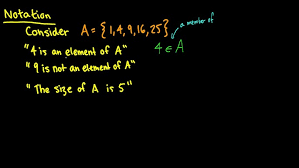 Notation
Consider A = {1, 4, 9, 16, 25}
a member of
"4 is an element of A" 4 ∈ A
"9 is not an element of A"
"The size of A is 5"